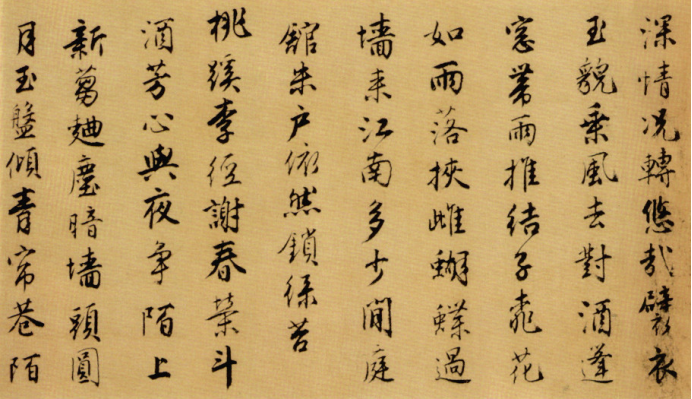 深情况轉悠哉襞衣
玉貌乘風去對酒蓬
窓帶雨推結子桃花
如雨落挾雌蝴蝶過
墻來江南多少閒庭
舘朱戶依然鎖綠苔
桃蹊李徑謝春榮斗
酒芳心與夜争陌上
新蒭麯塵暗墻頭圓
月玉盤傾青帘巷陌